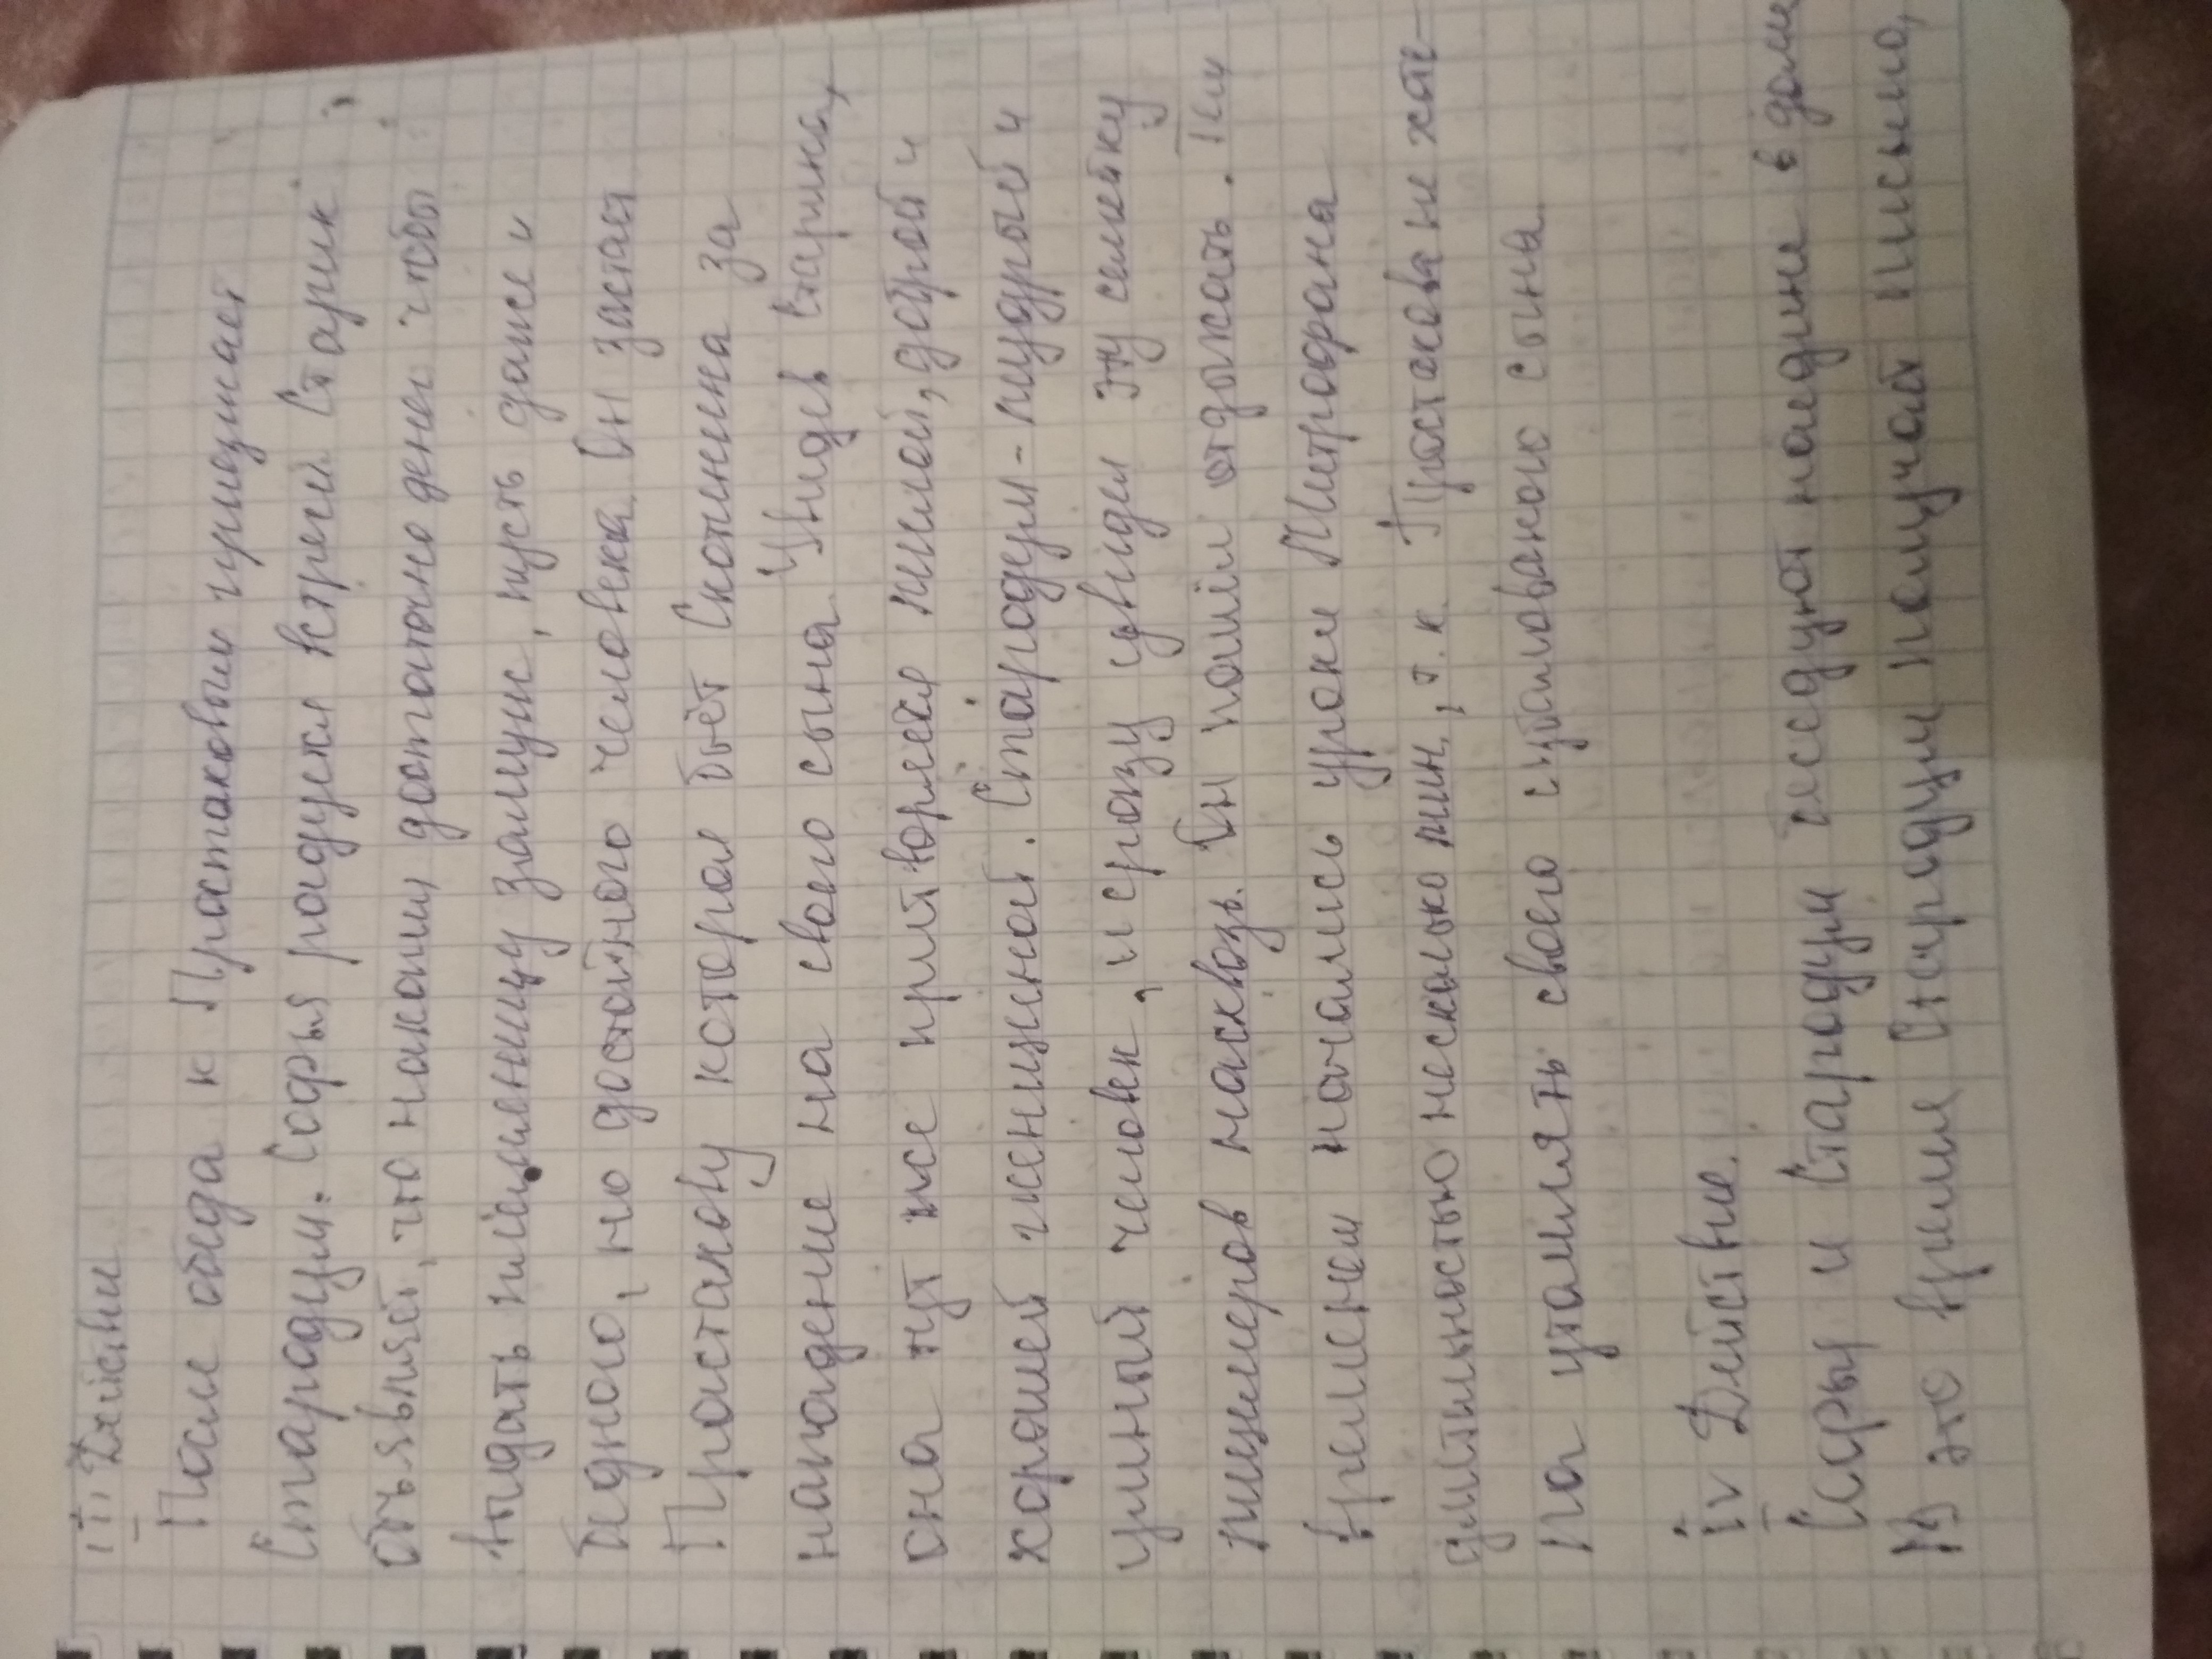 III Действие
После обеда к Простаковым приезжает
Стародум. Софья радуется встречи. Старик
объявляет, что накопил достаточно денег чтобы
выдать племяенницу замуж, пусть даже и
бедного, но достойного человека. Он застал
Простакову которая бьёт Скотинина за
нападение на своего сына. Увидев старика,
она тут же притворяется милой, доброй и
хорошей женщиной. Стародум - мудрый и
умный человек, и сразу увидел эту семейку
лицемеров насквозь. Он пошёл отдыхать. Тем
временем начались уроки Митрофана
длительностью несколько мин., т.к. Простакова не хоте-
ла утомлять своего избалованого сына.
IV Действие.
Софья и Стародум беседуют наедине в доме
В это время Стародум получает письмо,